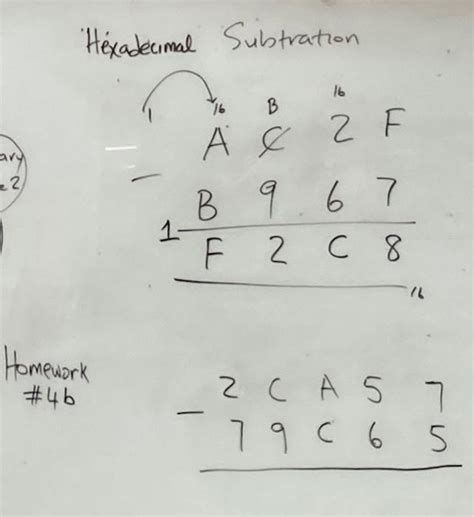 Hexadecimal Subtration
1 16 B 16
A C 2 F
ary
e 2
- B 9 6 7
1 F 2 C 8
16
Homework
#4b
2 C A 5 7
- 7 9 C 6 5